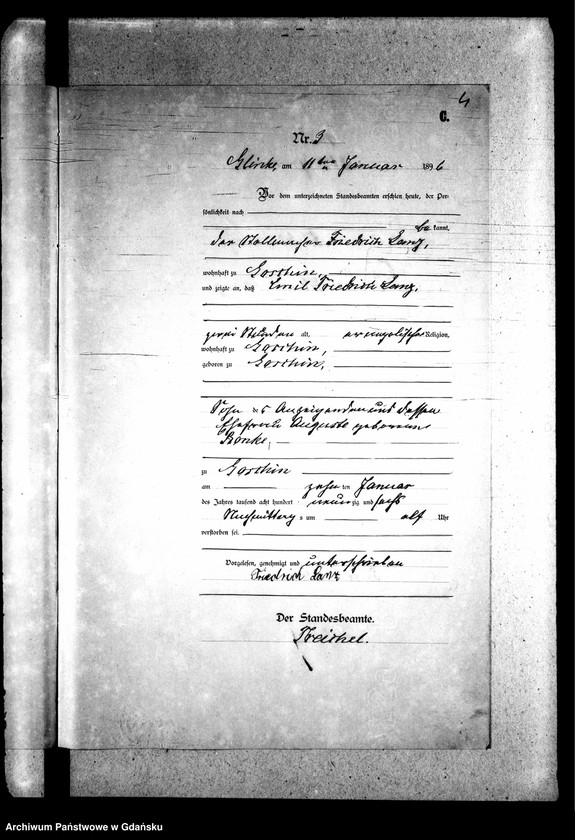 4
C.
Nr. 3
Glincke, am 11ten Januar 1896
Vor dem unterzeichneten Standesbeamten erschien heute, der Per-
sönlichkeit nach
bekannt,
der Friedrich Lanz,
wohnhaft zu Goschin,
und zeigte an, daß Emil Friedrich Lanz,
zwei Stunden alt, evangelischer Religion,
wohnhaft zu Goschin,
geboren zu Goschin,
Sohn des Anzeigenden und dessen
Ehefrau Auguste geborene
zu Goschin
am zehnten Januar
des Jahres tausend acht hundert neunzig und sechs
Nachmittags um elf Uhr
verstorben sei.
Vorgelesen, genehmigt und unterschrieben
Friedrich Lanz
Der Standesbeamte.
Treichel.
Archiwum Państwowe w Gdańsku